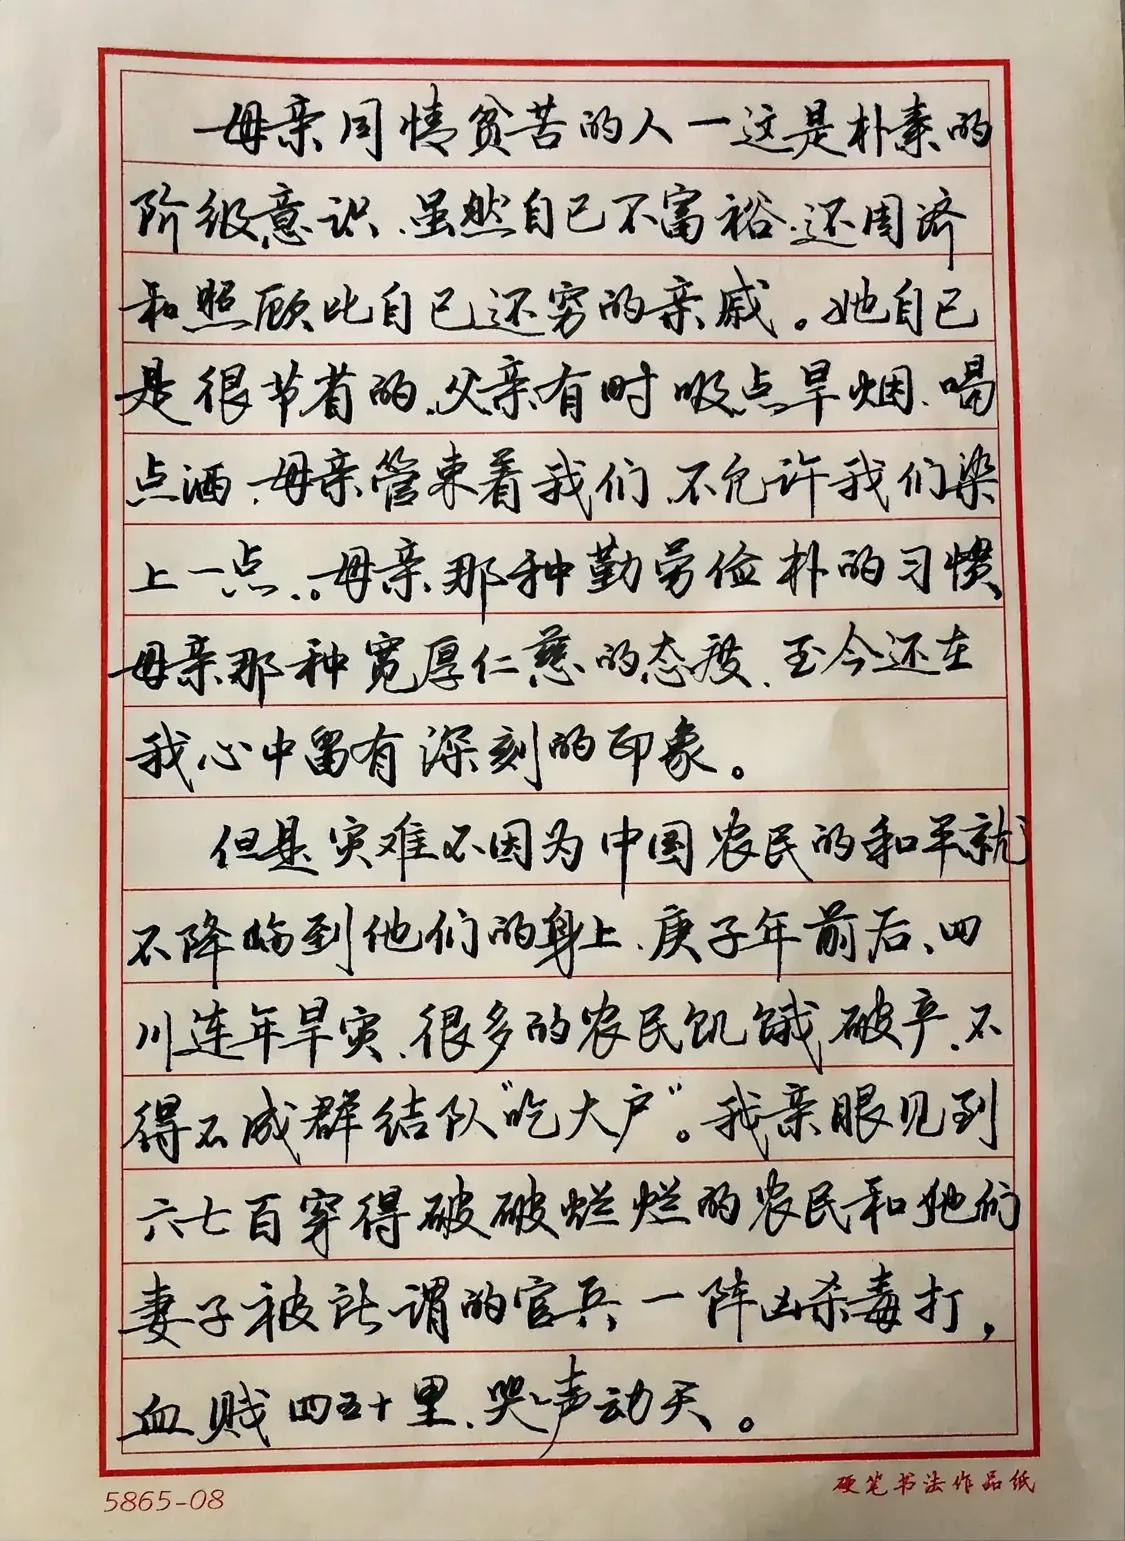 母亲同情贫苦的人一这是朴素的
阶级意识、虽然自己不富裕、还周济
和照顾比自己还穷的亲戚。她自己
是很节省的、父亲有时吸点旱烟、喝
点酒、母亲管束着我们、不允许我们染
上一点。母亲那种勤劳俭朴的习惯、
母亲那种宽厚仁慈的态度、至今还在
我心中留有深刻的印象。
但是灾难不因为中国农民的和平就
不降临到他们的身上、庚子年前后、四
川连年旱灾、很多的农民饥饿破产、不
得不成群结队“吃大户”。我亲眼见到
六七百穿得破破烂烂的农民和她们
妻子被所谓的官兵一阵凶杀毒打,
血贱四五十里、哭声动天。
5865-08
硬笔书法作品纸